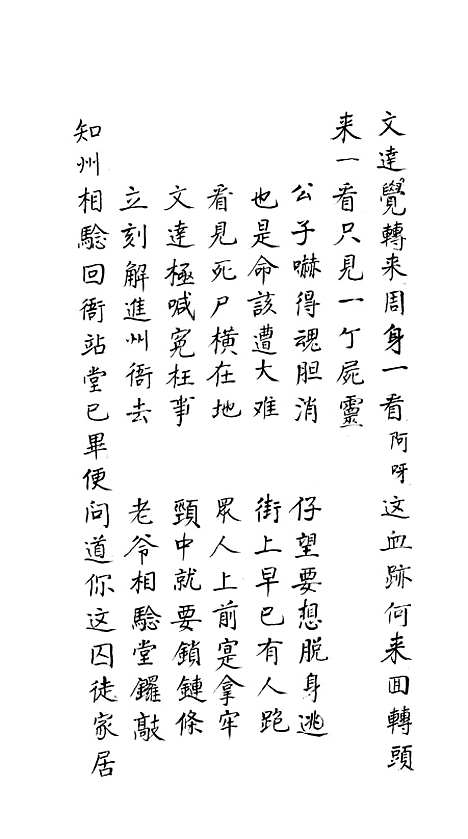 文達覺轉来周身一看阿呀这血跡何来回轉頭
来一看只見一丁屍靈
公子嚇得魂胆消　仔望要想脱身逃
也是命該遭大难　街上早已有人跑
看見死尸橫在地　眾人上前寔拿牢
文達極喊冤枉事　頸中就要鎖鏈條
立刻解進州衙去　老爷相驗堂鑼敲
知州相驗回衙站堂已畢便问道你这囚徒家居